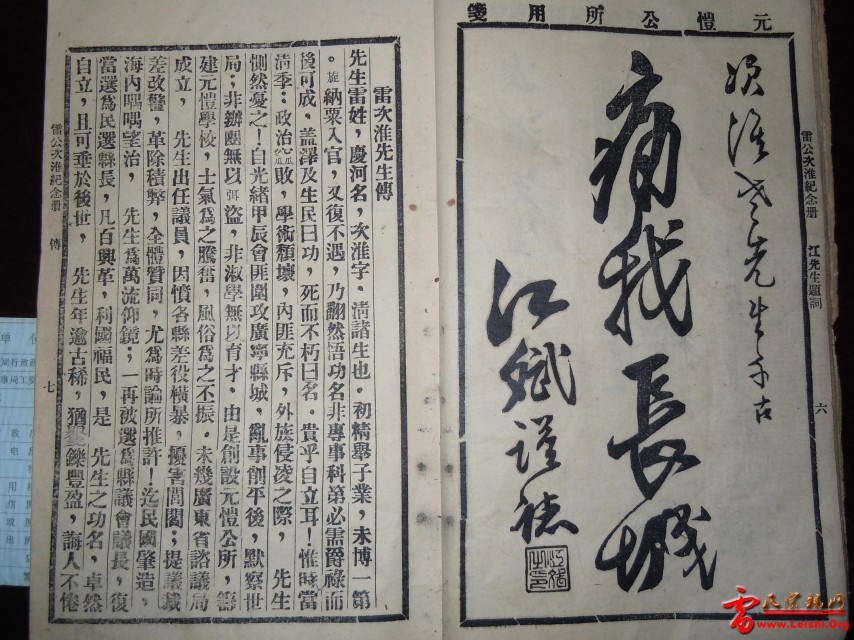 元愷公所用箋
雷公次淮紀念册 江先生題詞 六
次淮老先生千古
痛我長城
江
謹誌
雷次淮先生傳
先生雷姓，慶河名，次淮字。清諸生也。初精舉子業，未博一第
。旋納粟入官，又復不遇，乃翻然悟功名非專事科第必需爵祿而
後可成，蓋澤及生民曰功，死而不朽曰名。貴乎自立耳！惟時當
清季：政治窳敗，學術頹壞，內匪充斥，外族侵凌之際，先生
惻然憂之！自光緒甲辰會匪圍攻廣寧縣城，亂事削平後，默察世
局；非辦團無以弭盜，非淑學無以育才。由是創設元愷公所，籌
建元愷學校，士氣爲之騰奮，風俗爲之不振。未幾廣東省諮議局
成立，先生出任議員，因憤各縣差役橫暴，擾害閭閻；提議裁
差改警，革除積弊，全體贊同，尤爲時論所推許！迄民國肇造，
海內喁喁望治，先生爲萬流仰鏡；一再被選爲縣議會議長，復
當選爲民選縣長，凡百興革，利國福民，是 先生之功名，卓然
自立，且可垂於後世，先生年逾古稀，猶矍鑠豐盈，誨人不倦
雷公次淮紀念册 傳 七
雷氏宗親网
www.Leishi.Org